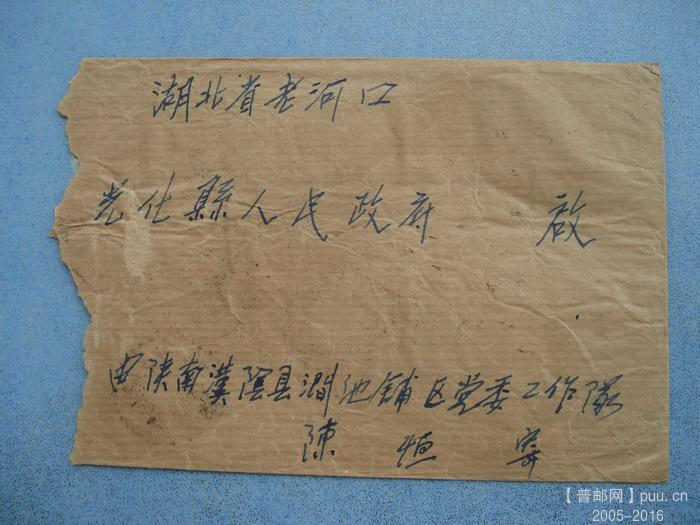 湖北省老河口
光化縣人民政府 啟
由陕南漢陰县澗池铺区党委工作隊
陳 恒 寄
【普邮网】puu.cn
2005-2016